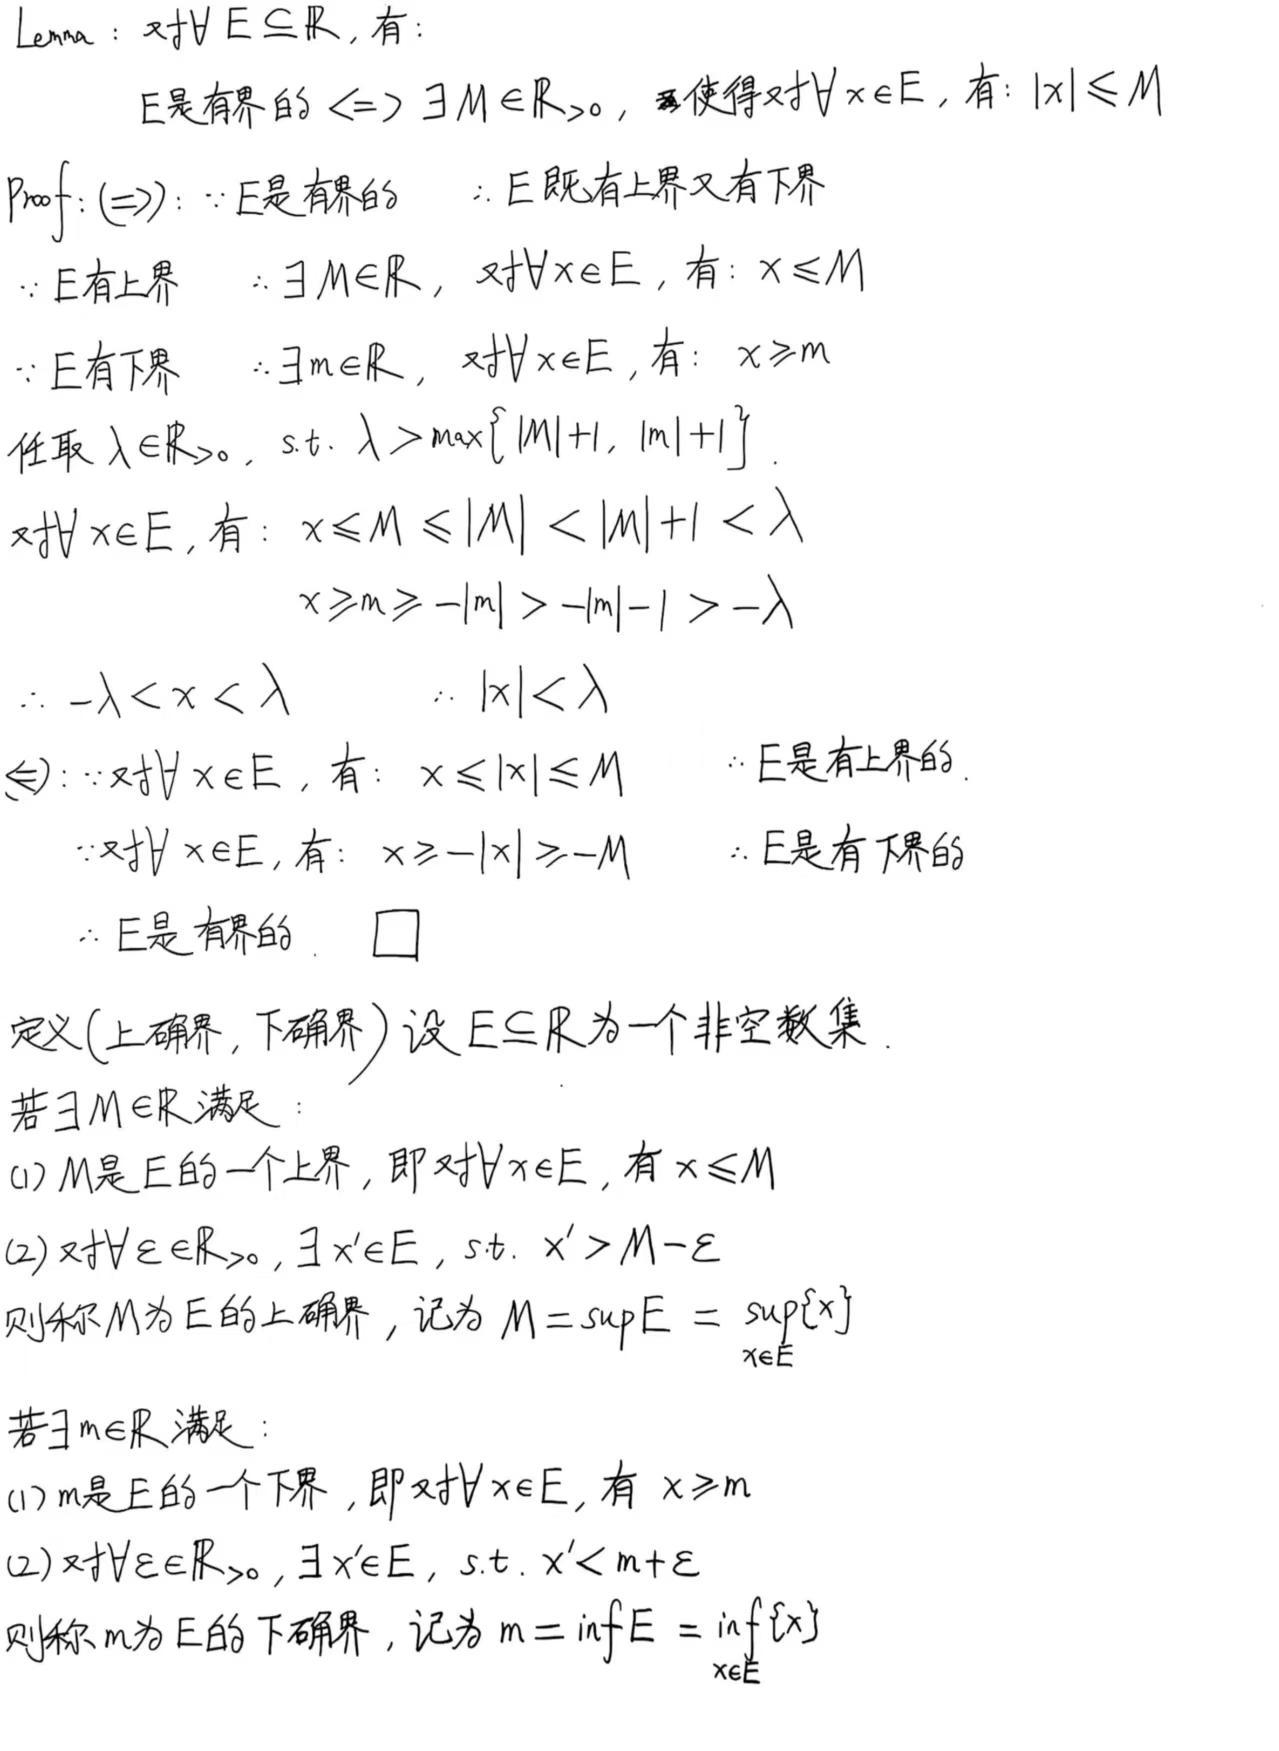 Lemma : 对∀ E ⊆ ℝ, 有:
E是有界的 <=> ∃ M ∈ ℝ>0, 使得对∀ x ∈ E, 有: |x| ≤ M
Proof: (=>): ∵ E是有界的 ∴ E既有上界又有下界
∵ E有上界 ∴ ∃ M∈ℝ, 对∀x∈E, 有: x ≤ M
∵ E有下界 ∴ ∃m∈ℝ, 对∀x∈E, 有: x ≥ m
任取 λ∈ℝ>0, s.t. λ > max{|M|+1, |m|+1}.
对∀ x∈E, 有: x ≤ M ≤ |M| < |M|+1 < λ
x ≥ m ≥ -|m| > -|m|-1 > -λ
∴ -λ < x < λ ∴ |x| < λ
(<=): ∵对∀ x∈E, 有: x ≤ |x| ≤ M ∴ E是有上界的.
∵对∀ x∈E, 有: x ≥ -|x| ≥ -M ∴ E是有下界的
∴ E是有界的. □
定义(上确界, 下确界) 设 E⊆ℝ为一个非空数集.
若∃M∈ℝ满足:
(1) M是E的一个上界, 即对∀x∈E, 有 x ≤ M
(2) 对∀ε∈ℝ>0, ∃x'∈E, s.t. x' > M-ε
则称M为E的上确界, 记为 M = sup E = sup{x}
x∈E
若∃m∈ℝ满足:
(1) m是E的一个下界, 即对∀x∈E, 有 x ≥ m
(2) 对∀ε∈ℝ>0, ∃x'∈E, s.t. x' < m+ε
则称m为E的下确界, 记为 m = inf E = inf{x}
x∈E